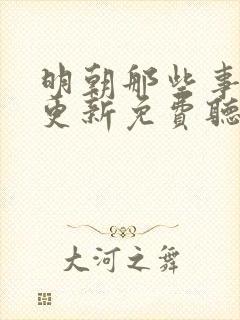 明朝那些事
更新免費聽
大河之舞